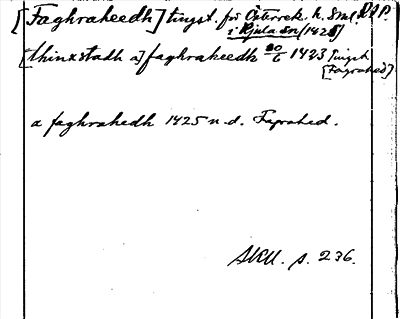 [Faghraheedh] tingst. för Österrek. h. Sml. RAP.
i Kjula sn (1425)
[thinxstadh a] faghraheedh 20/6 1423 Tingst
[Fagrahed]
a faghrahedh 1425 u.d. Fagrahed.
s. 236.